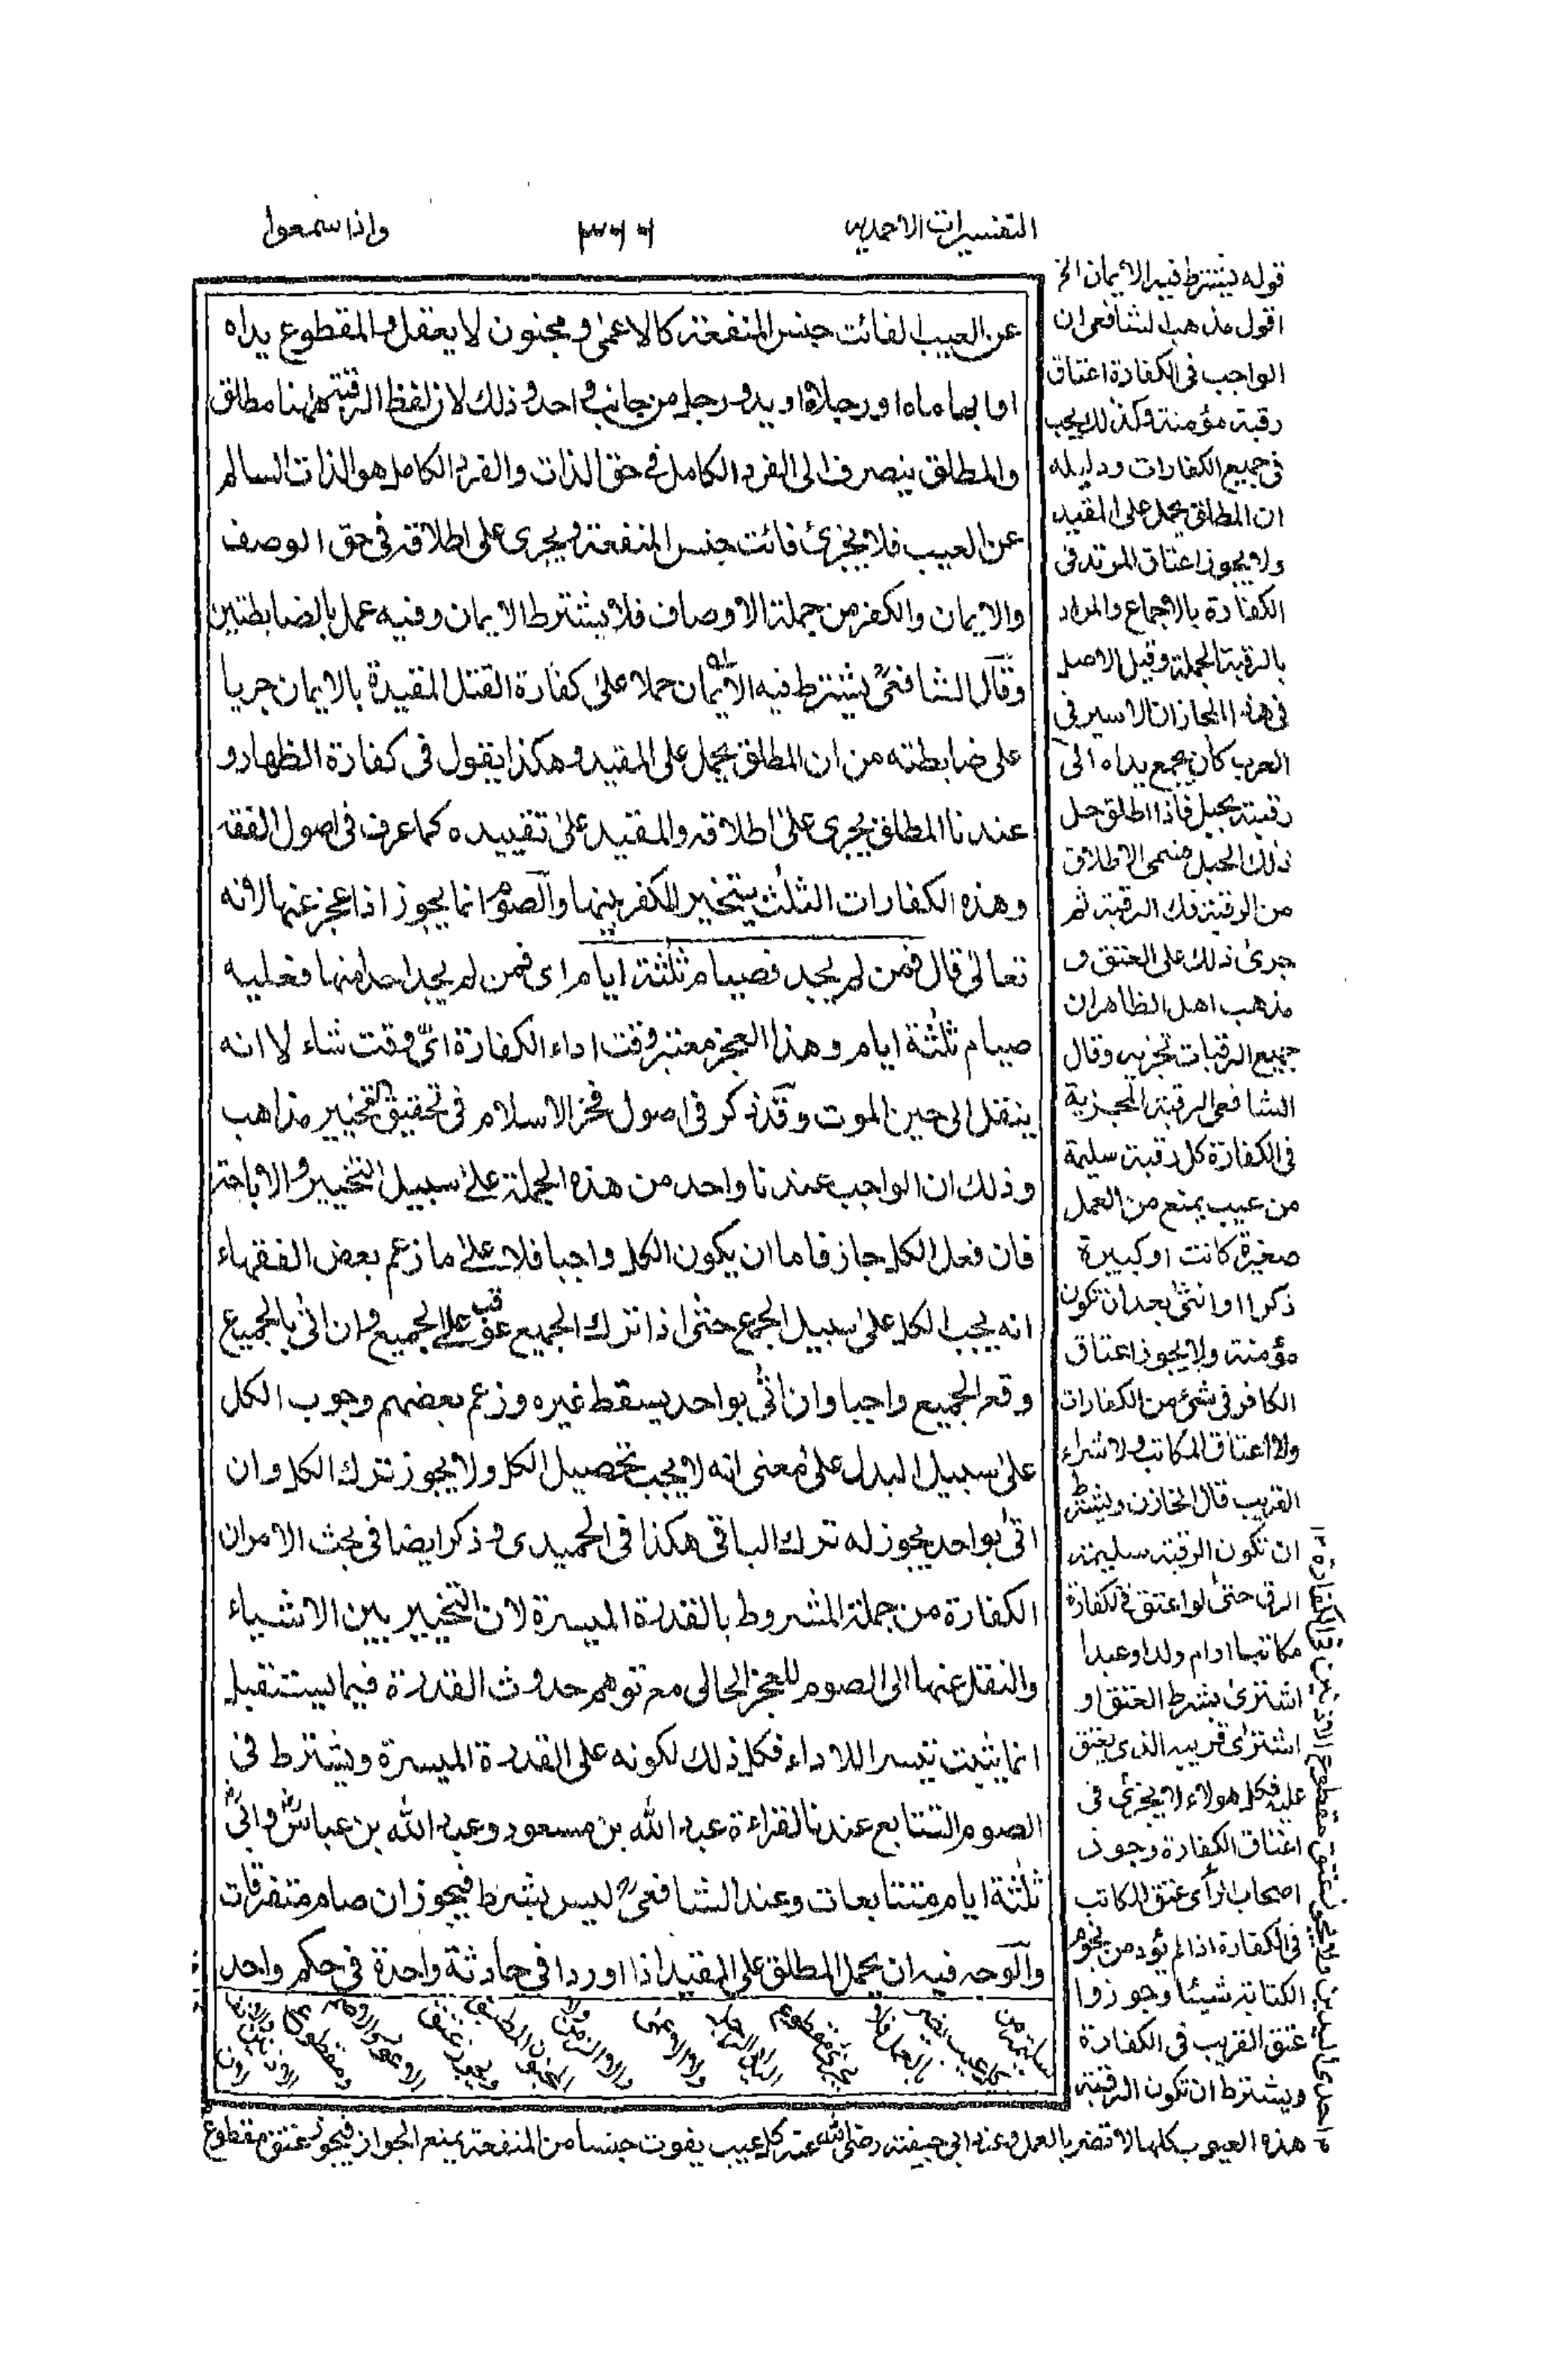 التفسيرات الاحمدیہ
۳۶۶
واذا سمعوا
عن العيب الفائت جنس المنفعة كالاعمى ومجنون لا يعقل والمقطوع يداه
او ابهاماه او رجلاه او يد ورجل من جانب واحد وذلك لان لفظ الرقبة ههنا مطلق
والمطلق ينصرف الى الفرد الكامل في حق الذات والفرد الكامل هو الذات السالم
عن العيب فلا يجزئ فائت جنس المنفعة ويجرى على اطلاقه في حق الوصف
والايمان والكفر من جملة الاوصاف فلا يشترط الايمان وفيه عمل بالضابطتين
وقال الشافعیؒ يشترط فيه الايمان حملا على كفارة القتل المقيدة بالايمان جريا
على ضابطته من ان المطلق يحمل على المقيد وهكذا يقول فى كفارة الظهار و
عندنا المطلق يجرى على اطلاقه والمقيد على تقييده كما عرف فى اصول الفقه
وهذه الكفارات الثلث يتخير المكفر بينها والصوم انما يجوز اذا عجز عنها لانه
تعالى قال فمن لم يجد فصيام ثلثة ايام اى فمن لم يجد احدا منها فعليه
صيام ثلثة ايام وهذا العجز معتبر وقت اداء الكفارة اىّ وقت شاء لا انه
ينقل الى حين الموت وقد ذكر فى اصول فخر الاسلام فى تحقيق التخيير مذاهب
وذلك ان الواجب عندنا واحد من هذه الجملة على سبيل التخيير والاباحة
فان فعل الكل جاز فاما ان يكون الكل واجبا فلا على ما زعم بعض الفقهاء
انه يجب الكل على سبيل الجمع حتى اذا ترك الجميع عوقب على الجميع وان اتى بالجميع
وقع الجميع واجبا وان اتى بواحد يسقط غيره وزعم بعضهم وجوب الكل
على سبيل البدل على معنى انه لا يجب تحصيل الكل ولا يجوز ترك الكل وان
اتى بواحد يجوز له ترك الباقى هكذا فى الحميدى وذكر ايضا فى بحث الامر ان
الكفارة من جملة المشروط بالقدرة الميسرة لان التخيير بين الاشياء
والنقل عنها الى الصوم للعجز الحالى مع توهم حدوث القدرة فيما يستقبل
انما يثبت تيسرا للاداء فكل ذلك لكونه على القدرة الميسرة ويشترط فى
الصوم التتابع عندنا لقراءة عبد الله بن مسعود وعبد الله بن عباسؓ وابىؓ
ثلثة ايام متتابعات وعند الشافعىؒ ليس بشرط فيجوز ان صام متفرقات
والوجه فيه ان يحمل المطلق على المقيد اذا اوردا فى حادثة واحدة فى حكم واحد
قوله يشترط فيه الايمان الخ
اقول مذهب الشافعى ان
الواجب فى الكفارة اعتاق
رقبة مؤمنة وكذلك يجب
فى جميع الكفارات ودليله
ان المطلق يحمل على المقيد
ولا يجوز اعتاق المرتد فى
الكفارة بالاجماع والمراد
بالرقبة الجملة وقيل الاصل
فى هذا المجاز ان الاسير فى
العرب كان يجمع يداه الى
رقبته بحبل فاذا اطلق حل
ذلك الحبل فسمى الاطلاق
من الرقبة فك الرقبة ثم
جرى ذلك على العتق و
مذهب اهل الظاهر ان
جميع الرقبات تجزيه وقال
الشافعى الرقبة المجزية
فى الكفارة كل رقبة سليمة
من عيب يمنع من العمل
صغيرة كانت او كبيرة
ذكرا او انثى بعد ان تكون
مؤمنة ولا يجوز اعتاق
الكافر فى شئ من الكفارات
ولا اعتاق المكاتب ولا شراء
القريب قال الخازن ويشترط
ان تكون الرقبة سليمة
الرق حتى لو اعتق فى الكفارة
مكاتبا او ام ولد او عبدا
اشترى بشرط العتق او
اشترى قريبه الذى يعتق
عليه فكل هولاء لا يجزئ فى
اعتاق الكفارة وجوز
اصحاب الرأى عتق المكاتب
فى الكفارة اذا لم يؤد من نجوم
الكتابة شيئا وجوزوا
عتق القريب فى الكفارة
ويشترط ان تكون الرقبة
سليمة من
هذه العيوب كلها لا تضر بالعمل وعند ابى حنيفة رضى الله عنه كل عيب يفوت جنسا من المنفعة يمنع الجواز فيجوز عتق مقطوع
احدى اليدين ولا يجوز عتق مقطوع الاذنين فى الكفارة ۱۲